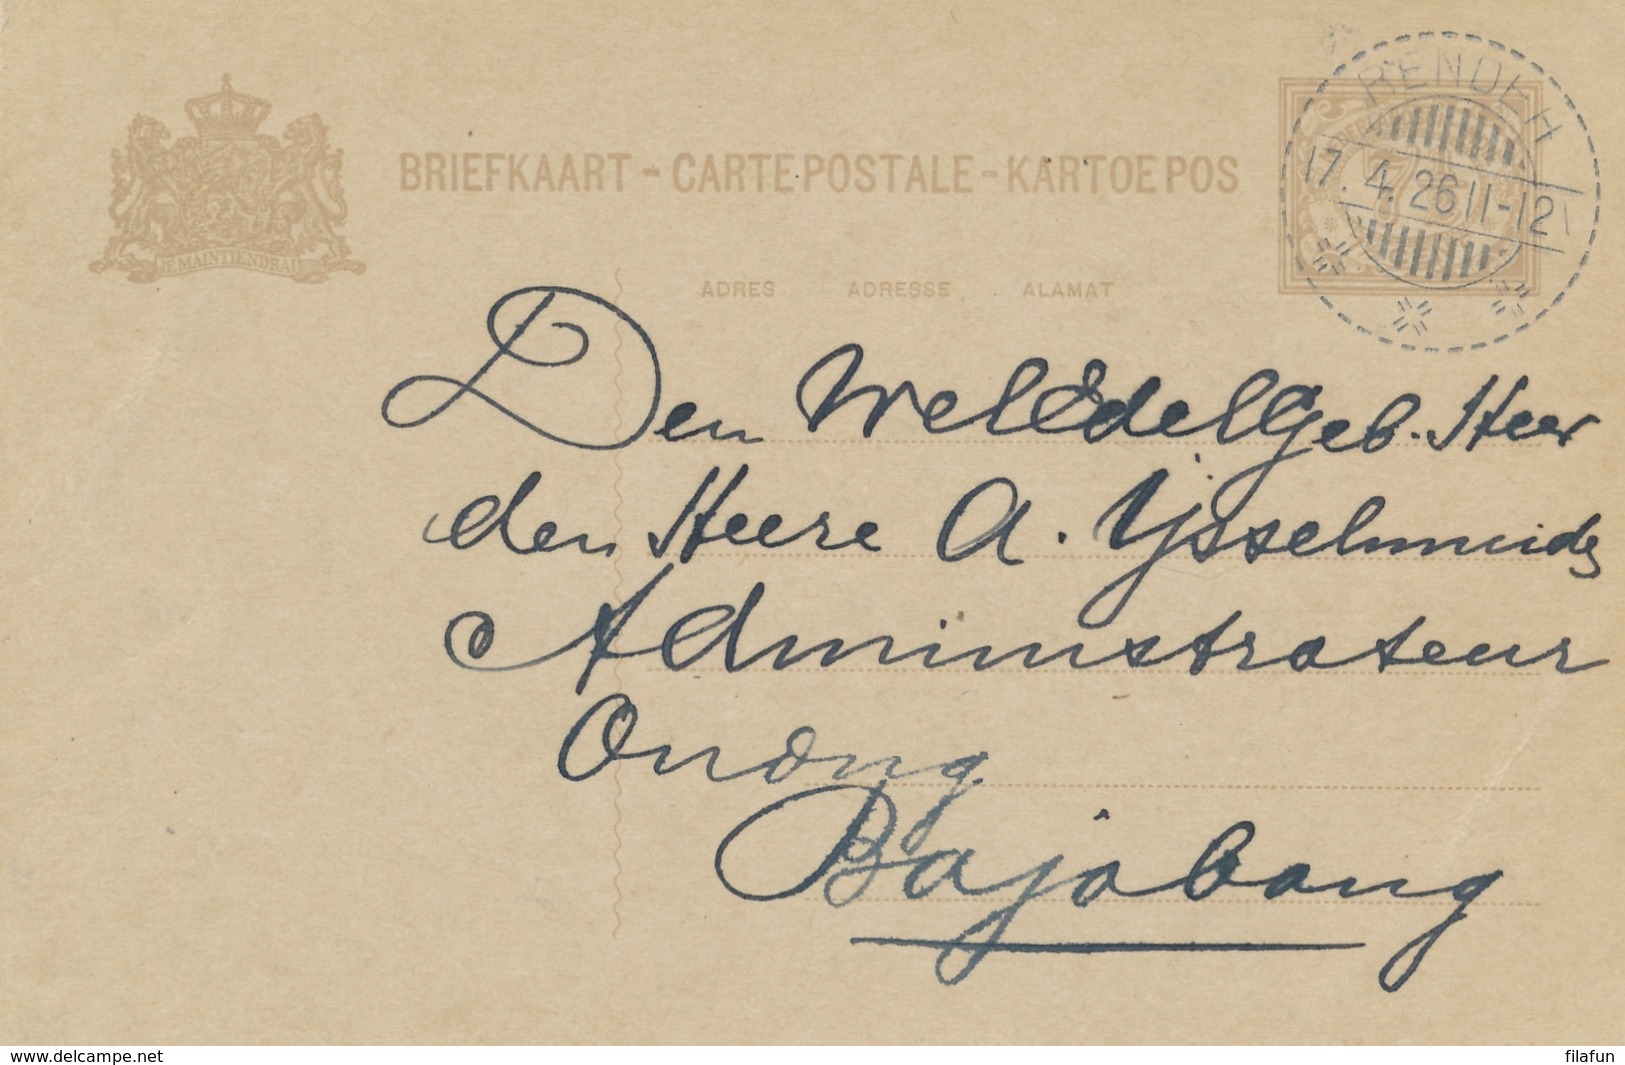 BRIEFKAART - CARTE POSTALE - KARTOE POS
RENDEH
17.4.26 11-12
7½
JE MAINTIENDRAI
ADRES ADRESSE ALAMAT
Den WelEdelGeb. Heer
den Heere A. Ysselmuide
Administrateur
Onong
Bajabang
www.delcampe.net
filafun